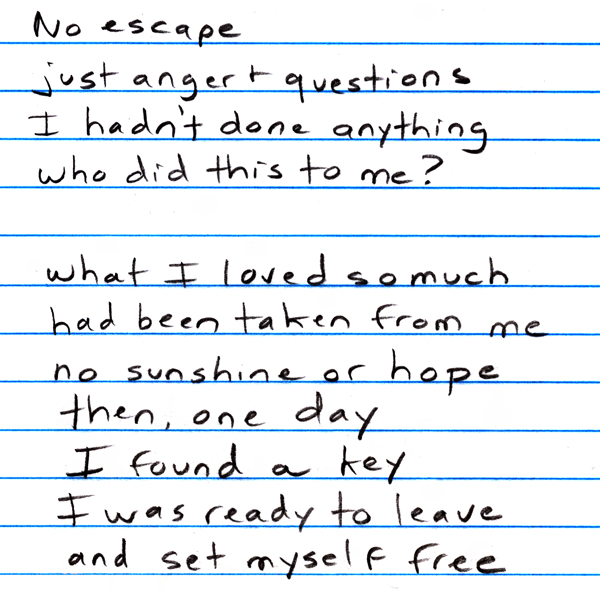 No escape
just anger + questions
I hadn't done anything
who did this to me?
what I loved so much
had been taken from me
no sunshine or hope
then, one day
I found a key
I was ready to leave
and set myself free